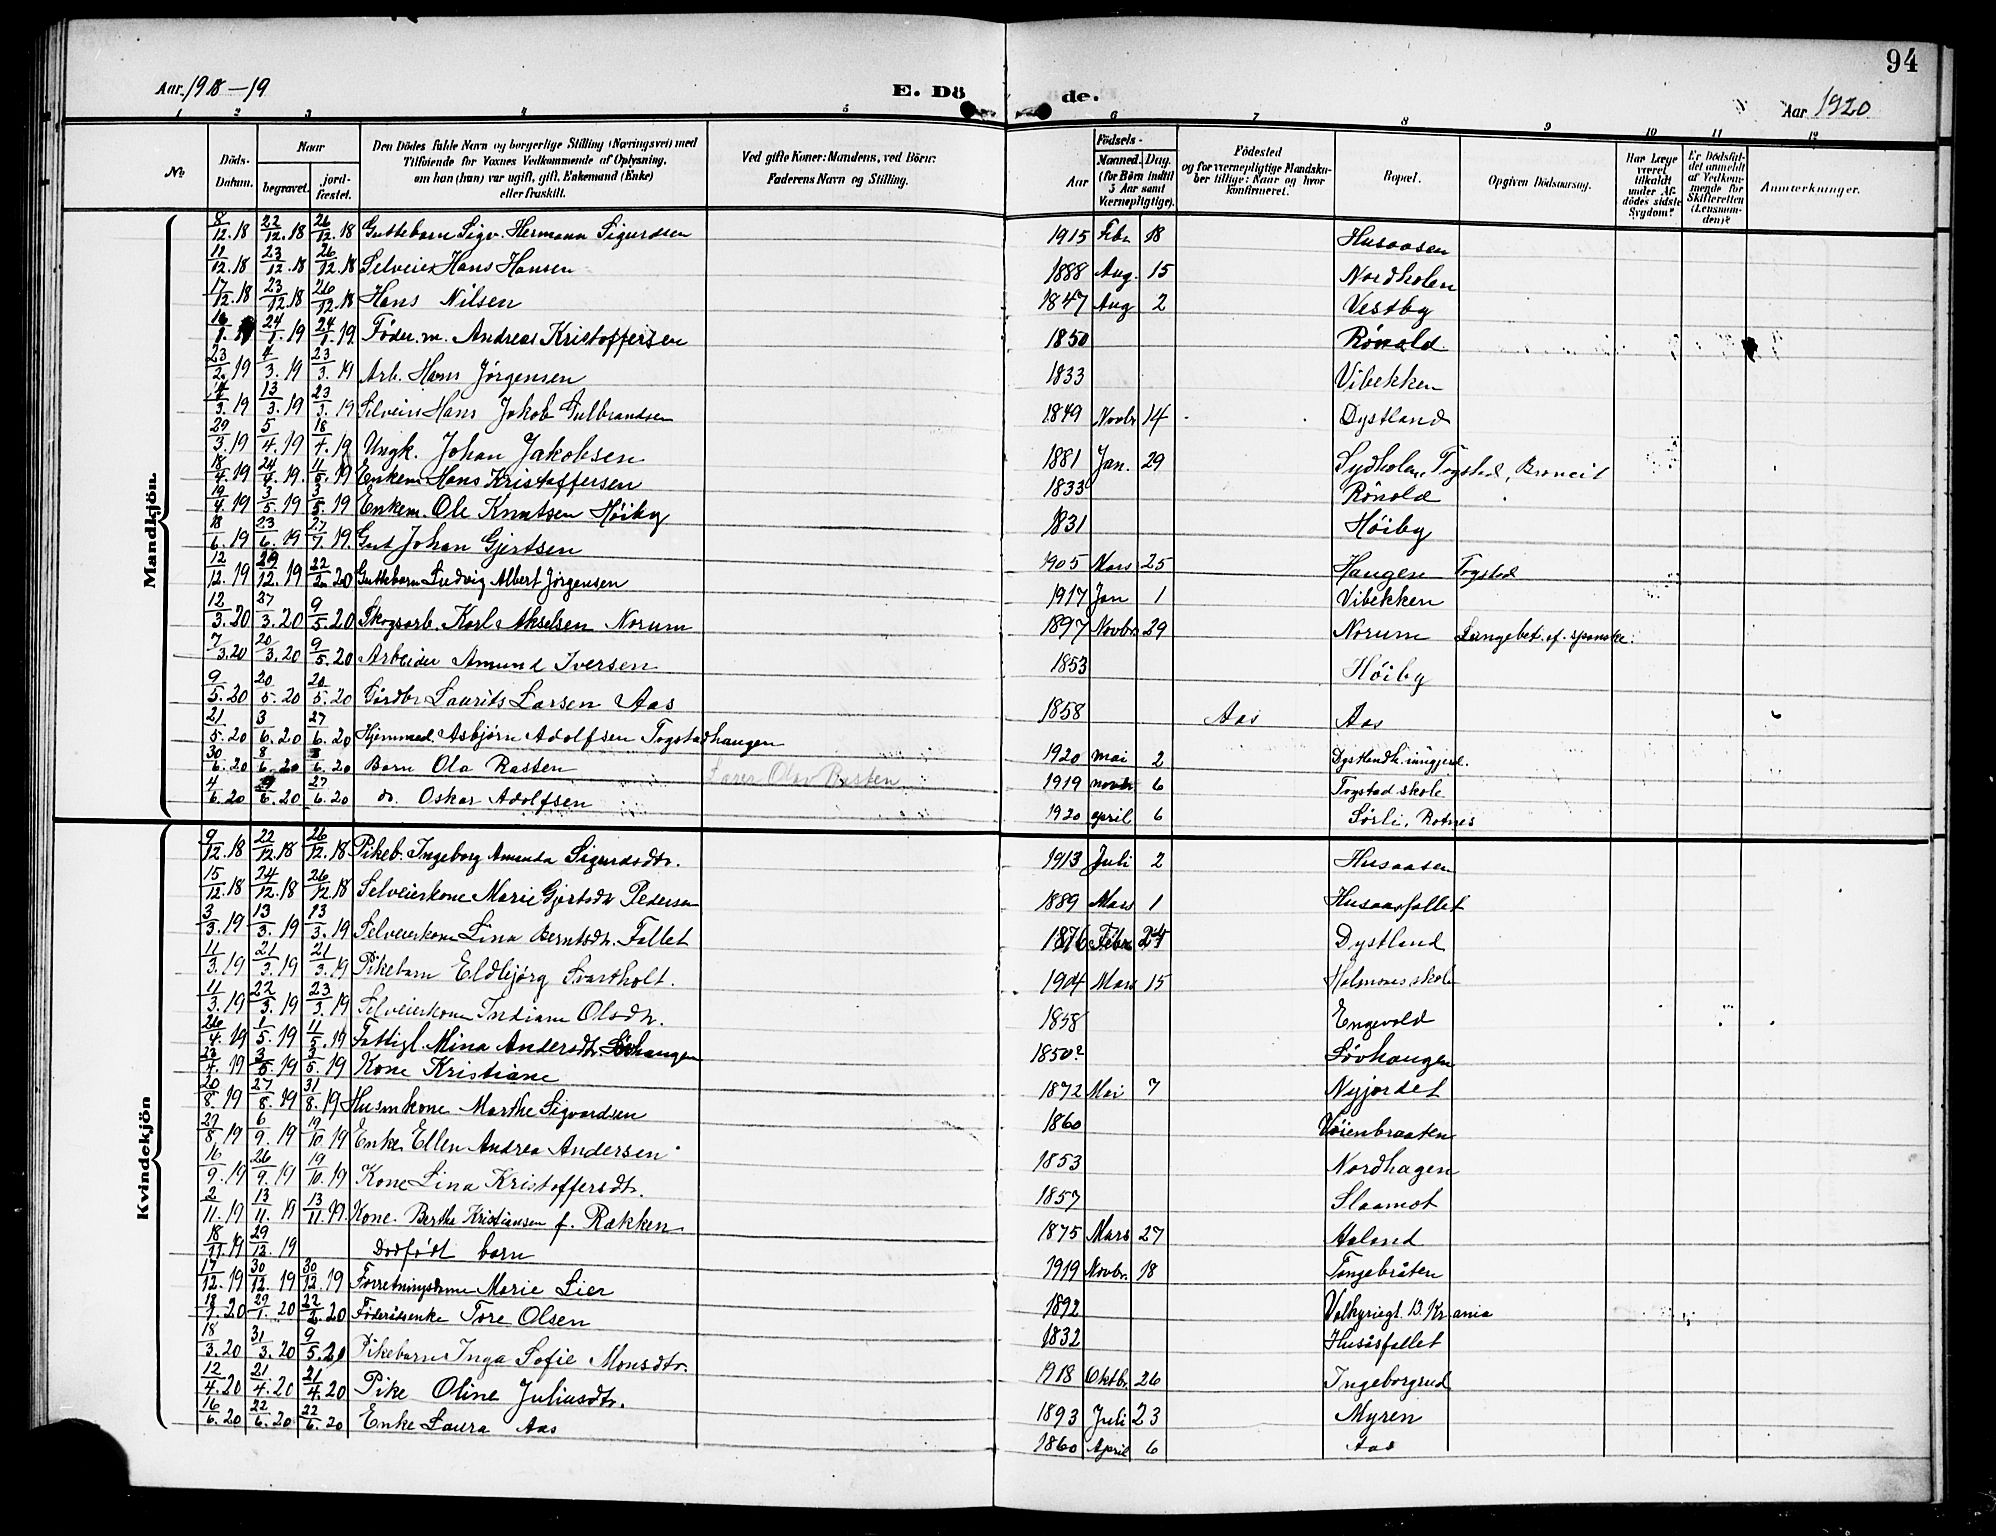 94
Aar. 1918–19 E. Dö de. Aar 1920
1 2 3 4 5 6 7 8 9 10 11 12
№ Döds-Datum. Naar begravet. jord-fæstet. Den Dödes fulde Navn og borgerlige Stilling (Næringsvei) med Tilföiende for Voxnes Vedkommende af Oplysning, om han (hun) var ugift, gift, Enkemand (Enke) eller fraskilt. Ved gifte Koner: Mandens, ved Börn: Faderens Navn og Stilling. Födsels- Aar Maaned. Dag. (for Börn indtil 5 Aar samt Værnepligtige). Födested og for værnepligtige Mandskaber tillige: Naar og hvor konfirmeret. Bopæl. Opgiven Dödsaarsag. Har Læge været tilkaldt under Afdödes sidste Sygdom? Er Dödsfaldet anmeldt af Vedkommende for Skifteretten (Lensmanden)? Anmærkninger.
Mandkjön.
8/12.18 22/12.18 26/12.18 Guttebarn Sigv. Hermann Sigurdsen 1915 Febr 18 Husaasen
11/12.18 23/12.18 26/12.18 Selveier Hans Hansen 1888 Aug. 15 Nordholen
17/12.18 23/12.18 26/12.18 Hans Nilsen 1847 Aug 2 Vestby
16/1. 24/1.19 24/1.19 Föder.m. Andreas Kristoffersen 1850 Rönold
23/2.19 4/3.19 23/3.19 Arb. Hans Jørgensen 1833 Vibekken
4/3.19 13/3.19 23/3.19 Selveier Hans Jakob Gulbrandsen 1849 Novbr 14 Dystland
29/3.19 5/4.19 18/4.19 Ungk. Johan Jakobsen 1881 Jan. 29 Sydholen, Togstad, Broncit
18/4.19 24/4.19 11/5.19 Enkem Hans Kristoffersen 1833 Rönold
19/4.19 3/5.19 3/5.19 Enkem. Ole Knutsen Höiby 1831 Höiby
18/6.19 23/6.19 27/7.19. Gut Johan Gjertsen 1905 Mars 25 Haugen Togstad
12/12.19 29/12.19 22/2.20 Guttebarn Ludvig Albert Jørgensen 1917 Jan 1 Vibekken
12/3.20 27/3.20 9/5.20 Skogsarb. Karl Akselsen Norum 1897 Novbr 29 Norum Lungebet. ef. spanske
7/3.20 20/3.20 9/5.20 Arbeider Amund Iversen 1853 Höiby
9/5.20 20/5.20 20/5.20 Gårdbr Laurits Larsen Aas 1858 Aas Aas
21/5.20 3/6.20 27/6.20 Hjemmed. Asbjörn Adolfsen Togstadhaugen 1920 mai 2
30/6.20 8/6.20 8/6.20 Barn Ola Rasten Farer Olav Rasten 1919 novbr 6 Togstad skole
4/6.20 29/6.20 27/6.20 do. Oskar Adolfsen 1920 april 6 Sørli, Rotnes
Kvindekjön
9/12.18 22/12.18 26/12.18 Pikeb. Ingeborg Amanda Sigurdsdtr. 1913 Juli 2 Husaasen
15/12.18 24/12.18 26/12.18 Selveierkone Marie Gjertsdtr Pedersen 1889 Mars 1 Husaasfallet
3/3.19 13/3.19 13/3.19 Selveierkone Lina Berntsdtr. Fallet 1876 Febr 24 Dystland
11/3.19 21/3.19 21/3.19 Pikebarn Eldbjörg Svartholt. 1904 Mars 15 Holmones skole
11/3.19 22/3.19 23/3.19 Selveierkone Indiane Olsdtr. 1858 Engevold
26/4.19 1/5.19 11/5.19 Fattigl. Mina Andersdtr. Lövhaugen 1850? Lövhaugen
23/4.19 3/5.19 3/5.19 Kone Kristiane 1872 Mai 7 Nyjordet
20/8.19 27/8.19 31/8.19 Husmkone Marthe Sigvardsen 1860 Vöienbraaten
27/8.19 6/9.19 19/10.19 Enke Ellen Andrea Andersen 1853 Nordhagen
16/9.19 26/9.19 19/10.19 Kone Lina Kristoffersdtr. 1857 Slaamot
2/11.19 13/11.19 13/11.19. Kone. Berthe Kristiansen f. Rakken 1875 Mars 27 Aaland
18/11.19 29/12.19 Dødfødt barn 1919 Novbr. 18 Tangebråten
17/12.19 30/12.19 30/12.19 Forretningsdame Marie Lier 1892 Valkyriegt. 13. Kr.ania
18/1.20 29/1.20 22/2.20 Föderådsenke Tore Olsen 1832 Husåsfallet
18/3.20 31/3.20 9/5.20 Pikebarn Inga Sofie Monsdtr. 1918 Oktbr. 26 Ingeborgrud
12/4.20 21/4.20 21/4.20 Pike Oline Juliusdtr. 1893 Juli 23 Myren
16/6.20 22/6.20 22/6.20 Enke Laura Aas 1860 April 6 Aas